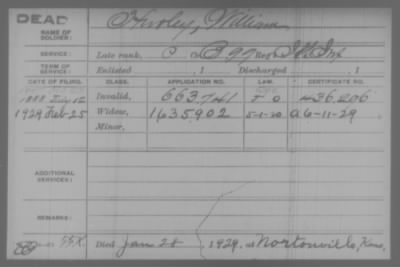 DEAD
NAME OF SOLDIER:
William
SERVICE: Late rank, Co. 99 Reg't Inf
TERM OF SERVICE: Enlisted , 1 Discharged , 1
DATE OF FILING. CLASS. APPLICATION NO. LAW. CERTIFICATE NO.
1888 July 12 Invalid, 663.741 436.206
1929 Feb-25 Widow, 1635.902 5-1-20 a 6-11-29
Minor,
ADDITIONAL SERVICES:
REMARKS:
Died Jan 28, 1929, at Nortonville, Kans,